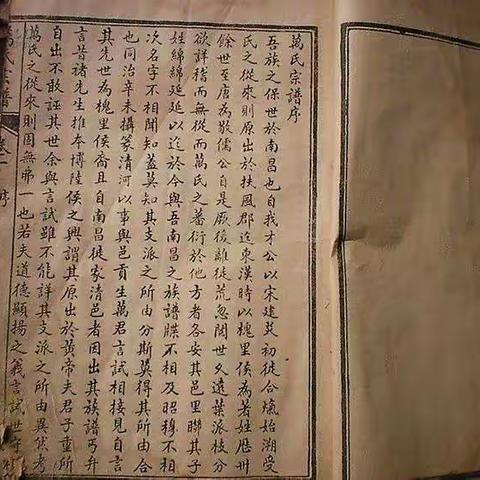 萬氏宗譜序
吾族之保世於南昌也自我才公以宋建炎初徙合始溯受
氏之從來則原出於扶風郡迄東漢時以槐里侯為著姓歷卅
餘世至唐為敬儒公自是厥後離徙荒忽閱世久遠葉派枝分
欲詳稽而無從而萬氏之蕃衍於他方者各安其邑里聯其子
姓綿綿延延以迄於今與吾南昌之族譜牒不相及昭穆不相
次名字不相聞知蓋莫知其支派之所由分斯莫得其所由合
也同治辛未攝篆清河以事與邑貢生萬君言試相接見自言
其先世為槐里侯裔且自南昌徙家清邑者因出其族譜丐弁
言昔諸先生推本博陸侯之興謂其原出於黃帝夫君子重所
自出不敢誣其世余與言試雖不能詳其支派之所由異然考
萬氏之從來則固無弗一也若夫道德顯揚之義言試世守
萬氏宗譜
序